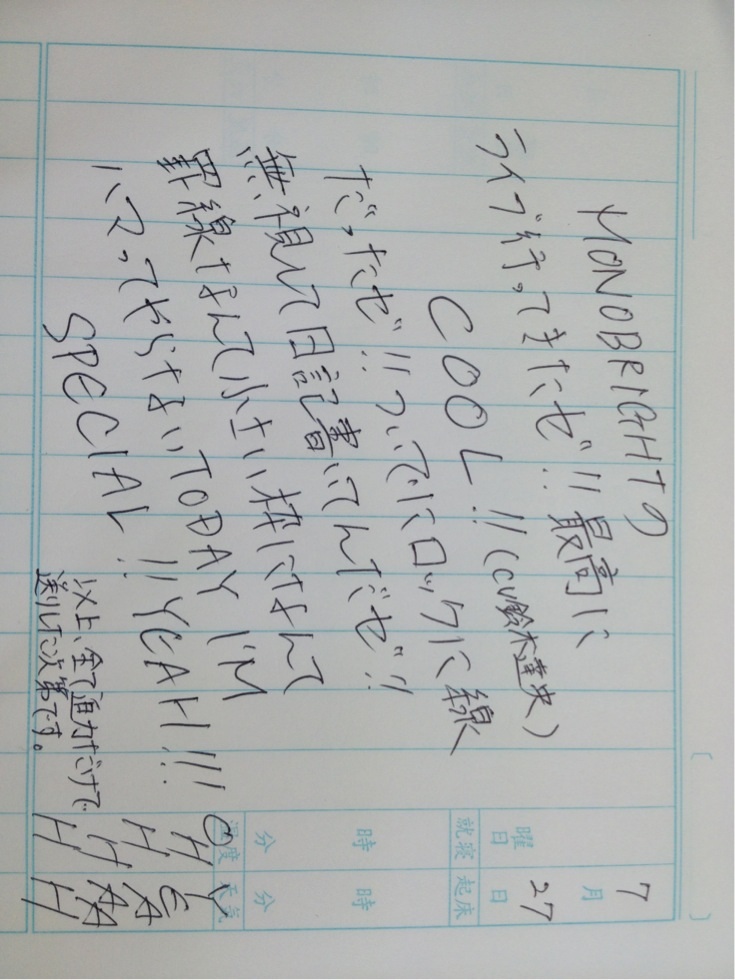 7月
27日 曜日
起床 就寝
時 時
分 分
天気 温度
MONOBRIGHTの
ライブ行ってきたぜ!! 最高に
COOL!! (CV鈴木達央)
だったぜ!! ついでにロックに線
無視して日記書いてんだぜ!!
罫線なんて小さい枠になんて
ハマってらんないTODAY I'M
SPECIAL!! YEAH!!!
以上、全て迫力だけで
送りした次第です。